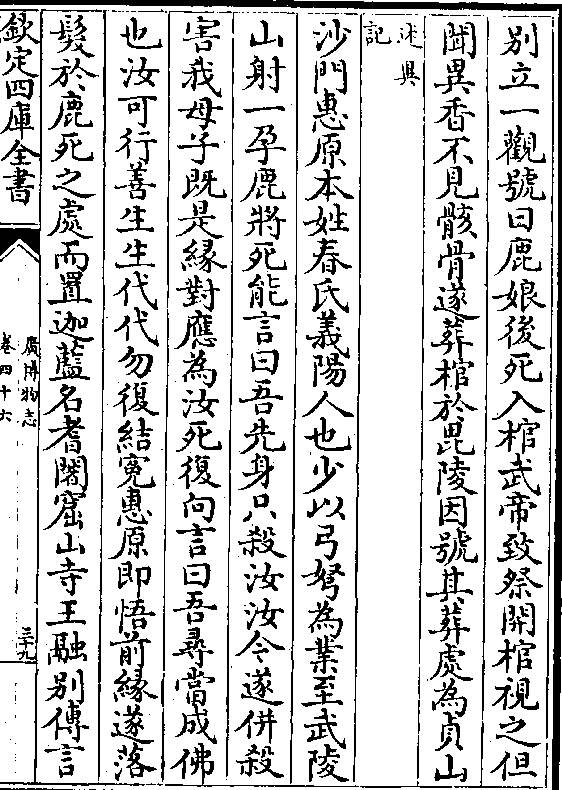 別立一觀號曰鹿娘後死入棺武帝致祭開棺視之但
聞異香不見骸骨遂葬棺於毘陵因號其葬處為貞山
述異
記
沙門惠原本姓春氏義陽人也少以弓弩為業至武陵
山射一孕鹿將死能言曰吾先身只殺汝汝今遂併殺
害我母子既是緣對應為汝死復向言曰吾尋當成佛
也汝可行善生生代代勿復結冤惠原即悟前緣遂落
髮於鹿死之處而置迦藍名耆闍窟山寺王融別傳言
欽定四庫全書
廣博物志
卷四十六
三十九